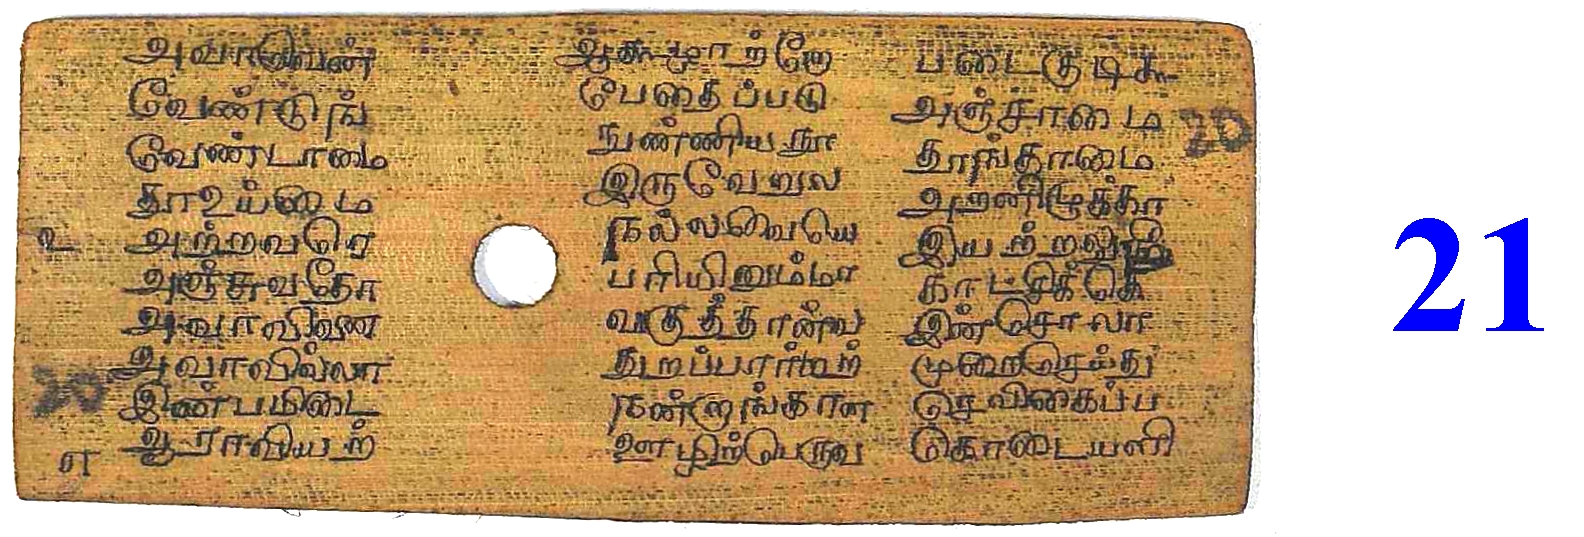 அவாவென்
வேண்டுங்
வேண்டாமை
தூஉய்மை
அற்றவரெ
அஞ்சுவதோ
அவாவினை
அவாவில்லா
இன்பமிடை
ஆராவியற்
உ
எ
ஆகூழாற்றே
பேதைப்படு
நுண்ணியநூ
இருவேறுல
நல்லவையெ
பரியினும்மா
வகுத்தான்வ
துறப்பார்மற்
நன்றாங்கால
ஊழிற்பெருவ
படைகுடிகூ
அஞ்சாமை
தூங்காமை
அறனிழுக்கா
இயற்றலு
காட்சிக்கெ
இன்சொலா
முறைசெய்து
செவிகைப்ப
கொடையளி
21